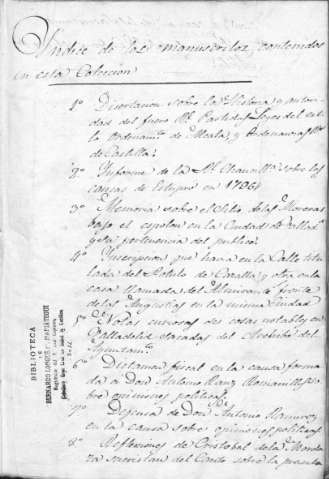 Indice de los manuscritos contenidos
en esta Coleccion
1º Disertacion sobre la Historia, y autori
dad del fuero Rl. Partidas, Leyes del esti
lo Ordenam.to de Alcala, y Ordenanzas Rs.
de Castilla.
2º Informe de la Rl. Chancill.a sobre los
causas de Estupro en 1796
3º Memoria sobre el sitio de las Moreras
bajo el espolon en la Ciudad de Vallad.
y su pertenencia del publico.
4º Inscripcion que havia en la Calle titu
lada del Rotulo de Cazalla, y otra en la
casa llamada del Almirante frente
de las Angustias en la misma Ciudad
5º Notas curiosas de cosas notables en
Valladolid sacadas del Archibo del
Ayuntam.to
6º Dictamen fiscal en la causa forma
da a Don Antonio Ranz Romanillos so
bre opiniones politicas.
7º Defensa de Don Antonio Ramirez
en la causa sobre opiniones politicas
8º Reflexiones de Cristobal de la
sacristan del sobre la
BIBLIOTECA
DE
BERNARDO